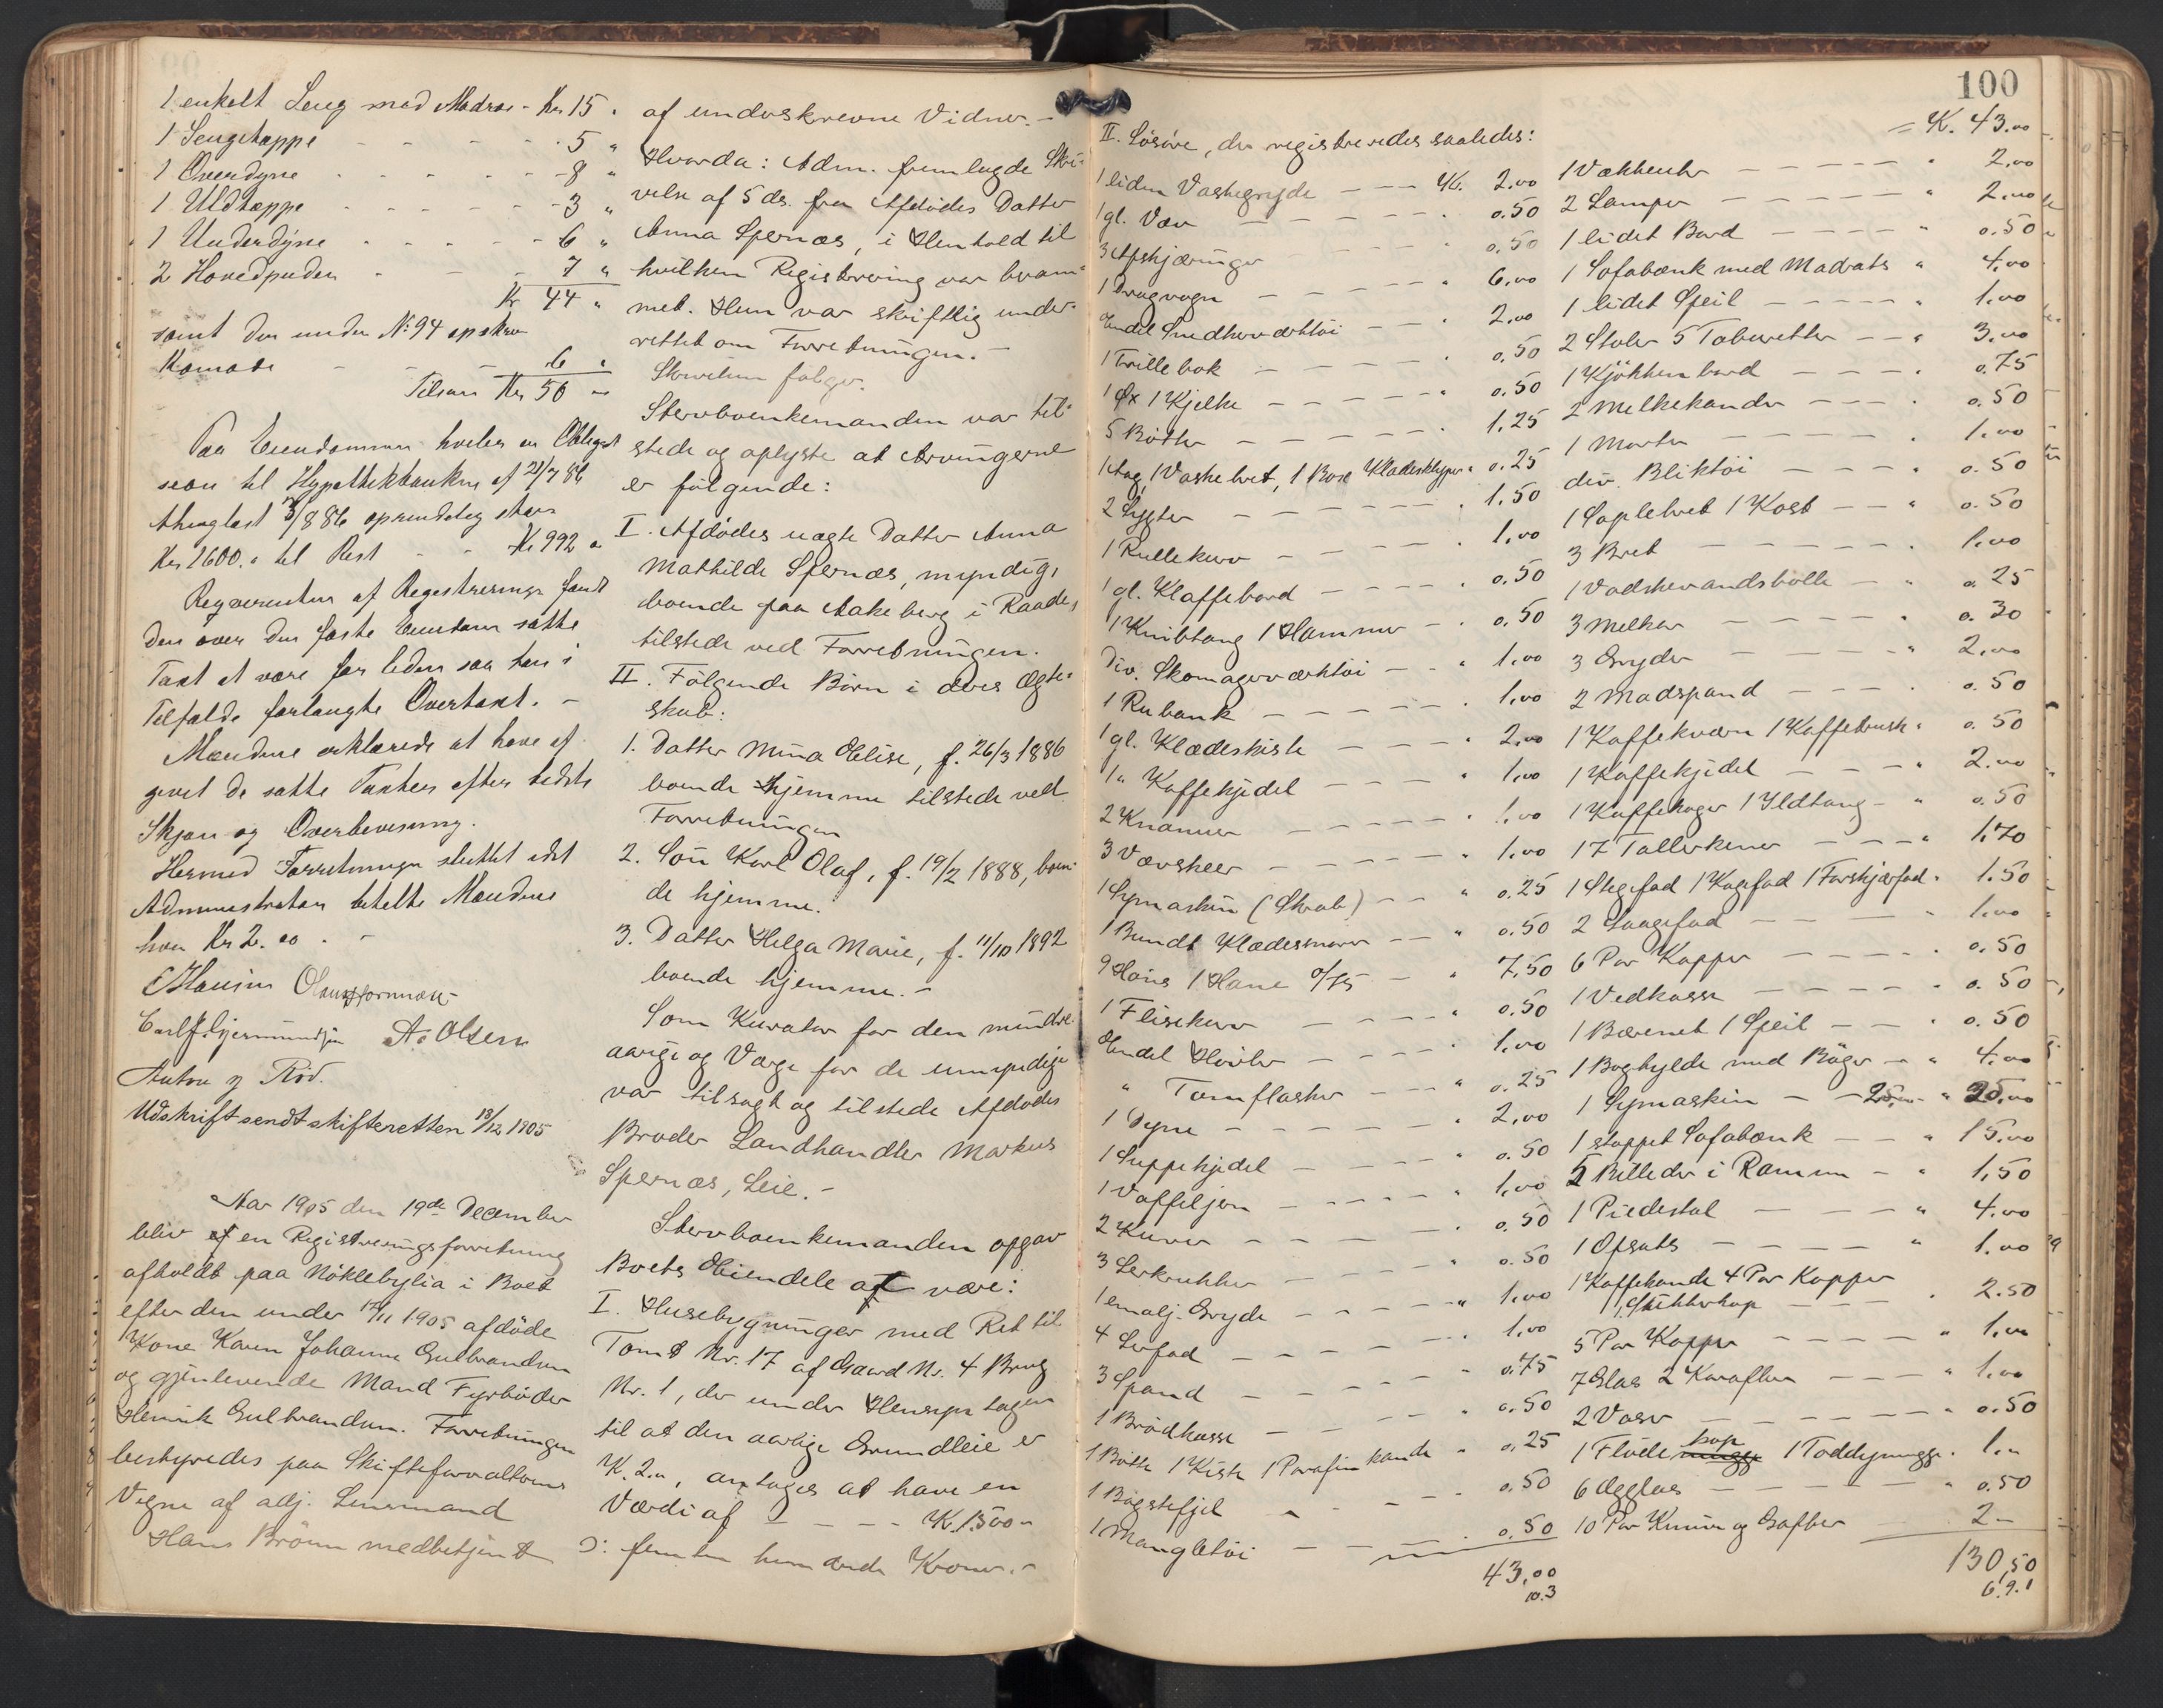 1 enkelt Seng med Madras - Kr 15 "
1 Sengetæppe - - - - - 5 "
1 Overdyne - - - - - 8 "
1 Uldtæppe - - - - - 3 "
1 Underdyne - - - - - 6 "
2 Hovedpuder - - - 7 "
Kr 44 "
samt den under No 94 opskrevne
Komode - - - - 6 "
Tilsam Kr 50 "
Paa Eiendommen hviler en Obligat
sion til Hypothekbanken af 21/7 86
thinglæst 3/8 86 oprindelig stor
Kr 1600. " til Rest - - Kr 992 "
Reqvirenten af Registreringen fandt
den over den faste Eiendom satte
Taxt at være for liden saa han i
Tilfælde forlangte Overtaxt. -
Mændene erklærede at have af
givet de satte Taxter efter bedste
Skjøn og Overbevisning.
Hermed Forretningen sluttet idet
Administrator betalte Mændene
hver Kr 2.00. -
A. Olsen
Anton Rød.
Udskrift sendt skifteretten 13/12 1905
Aar 1905 den 19de December
blev af en Registreringsforretning
afholdt paa Nøklebylia i Boet
efter den under 17/11 1905 afdøde
Kone Karen Johanne Gulbrandsen
og gjenlevende Mand Fyrbøder
Henrik Gulbrandsen. Forretningen
bestyredes paa Skifteforvalterens
Vegne af adj. Lensmand
Hans Brønn medbetjent
af undeskrevne Vidner. -
Hvorda: Adm. fremlagde Skri-
velse af 5 ds. fra Afdødes Datter
Anna Spernæs, i Henhold til
hvilken Registrering var beram-
met. Hun var skriftlig under-
rettet om Forretningen. -
Skrivelsen følger.
Stervboenkemanden var til-
stede og oplyste at Arvingerne
er følgende:
I. Afdødes uægte Datter Anna
Mathilde Spernæs, myndig,
boende paa Aakeberg i Raade,
tilstede ved Forretningen.
II. Følgende Børn i deres Ægte-
skab:
1. Datter Mina Elise, f. 26/3 1886
boende hjemme tilstede ved
Forretningen
2. Søn Karl Olaf, f. 19/2 1888, boen-
de hjemme.
3. Datter Helga Marie, f. 11/10 1892
boende hjemme. -
Som Kurator for den mindre-
aarige og Værge for de umyndige
var tilsagt og tilstede Afdødes
Broder Landhandler Markus
Spernæs, Leie. -
Stervboenkemanden opgav
Boets Eiendele at være:
I. Husebygninger med Ret til
Tomt Nr. 17 af Gaard Nr. 4 Brug
Nr. 1, der under Hensyn tagen
til at den aarlige Grundleie er
K. 2.", antages at have en
Værdi af - - - - K. 1500 "
ɔ: femten hundrede Kroner. -
100
II. Løsøre, der registreredes saaledes:
1 liden Vaskegryde - - - K. 2.00
1 gl. Væv - - - - - " 0.50
3 Afskjæringer - - - - " 0.50
1 Dragvogn - - - - - " 6.00
Endel Snedkerværktøi - - - " 2.00
1 Trillebok - - - - - " 0.50
1 Øx 1 Kjelke - - - - - " 0.50
5 Bøtter - - - - - " 1.25
1 Sag, 1 Vaskebret, 1 Boxe Klædesklyper " 0.25
2 Lygter - - - - - " 1.50
1 Rullekurv - - - - - " 1.00
1 gl. Klaffebord - - - - " 0.50
1 Knibtang 1 Hammer - " 0.50
Div. Skomagerværktøi - - " 1.00
1 Rubank - - - - - " 1.00
1 gl. Klædeskiste - - - - " 2.00
1 " Kaffekjedel - - - - " 1.00
2 Knanner - - - - " 1.00
3 Vævskeer - - - - - " 1.00
1 Symaskin (Skrab) - - " 0.25
1 Bundt Klædessnorer - - " 0.50
9 Høns 1 Hane a/75 - " 7.50
1 Flisekurv - - - - " 0.50
Endel Høvler - - - - " 1.00
" Tomflasker - - - " 0.25
1 Dyne - - - - - " 2.00
1 Suppekjedel - - - - " 0.50
1 Vaffeljern - - - - " 1.00
2 Kurver - - - - - " 0.50
3 Lerkrukker - - - - " 0.50
1 emalj. Gryde - - - - " 1.00
4 Lerfad - - - - - " 1.00
3 Spand - - - - - " 0.75
1 Brødkasse - - - - " 0.50
1 Bøtte 1 Kiste 1 Parafinkande " 0.25
1 Bagstefjel - - - - " 0.50
1 Mangletøi - - - - " 0.50
43,00
10.3
= K. 43.00
1 Vækkeuhr - - - - " 2.00
2 Lamper - - - - - " 2.00
1 lidet Bord - - - - " 0.50
1 Sofabænk med Madrats " 4.00
1 lidet Speil - - - - " 1.00
2 Stoler 5 Taburetter - - " 3.00
1 Kjøkkenbord - - - - " 0.75
2 Melkekander - - - " 0.50
1 Morter - - - - - " 1.00
div. Bliktøi - - - - " 0.50
1 Saplebret 1 Kost - - " 0.50
3 Bret - - - - - " 1.00
1 Vadskevandsbolle - " 0.25
3 Melker - - - - - " 0.30
3 Gryder - - - - - " 2.00
2 Madspand - - - " 0.50
1 Kaffekværn 1 Kaffebrænk " 0.50
1 Kaffekjedel - - - " 2.00
1 Kaffekoger 1 Ildtang - " 0.50
17 Tallerkener - - - " 1.70
1 Stegefad 1 Kagefad 1 Forskjærfad " 1.50
2 Laagefad - - - - " 1.00
6 Par Kopper - - - - " 0.50
1 Vedkasse - - - - " 0.50
1 Bærenet 1 Speil - - " 0.50
1 Boghylde med Bøger - " 4.00
1 Symaskin - - 25,00 " 25,00
1 stoppet Sofabænk - - " 15.00
5 Billeder i Ramme - " 1,50
1 Piedestal - - - " 4.00
1 Opsats - - - - " 1.00
1 Kaffekande 4 Par Kopper
1 Sukkerkop - - - " 2.50
5 Par Kopper - - - - " 1.00
7 Glas 2 Karafler - - - " 1.00
2 Vaser - - - - - " 0.50
1 Fløde mugge kop 1 Toddymugge " 1."
6 Ægglas - - - - " 0.50
10 Par Kniver og Gafler 2 -
130,50
6.9.1